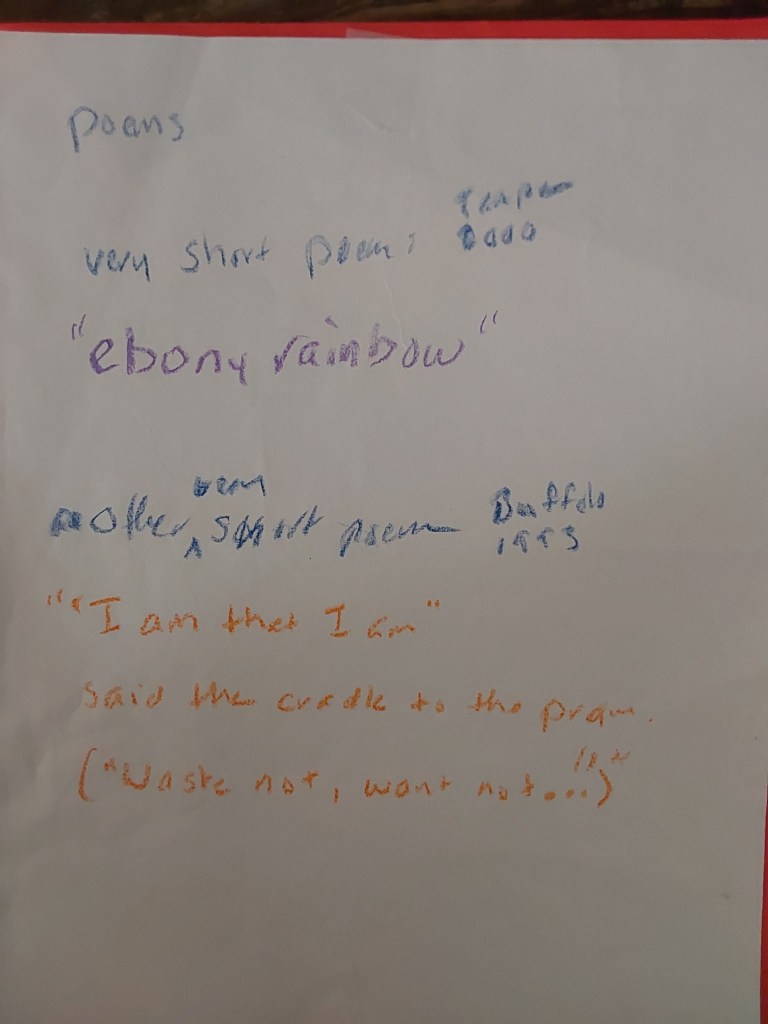 poems
very short poem: Tempe
2000
"ebony rainbow"
another very short poem Buffalo
1993
"'I am that I am"
said the cradle to the pram.
("Waste not, want not...!")"